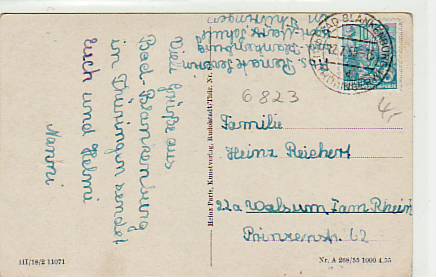 Viele Grüße aus
Bad Blankenburg
in Thüringen sendet
Euch und Helmi
Nanni
Heinz Putz, Kunstverlag, Rudolstadt/Thür. Nr.
BAD BLANKENBURG
6823
4,-
Familie
Heinz Reichert
22a Walsum/am Rhein
Prinzenstr. 62
III/18/2 11071
Nr. A 268/55 1000 4.55